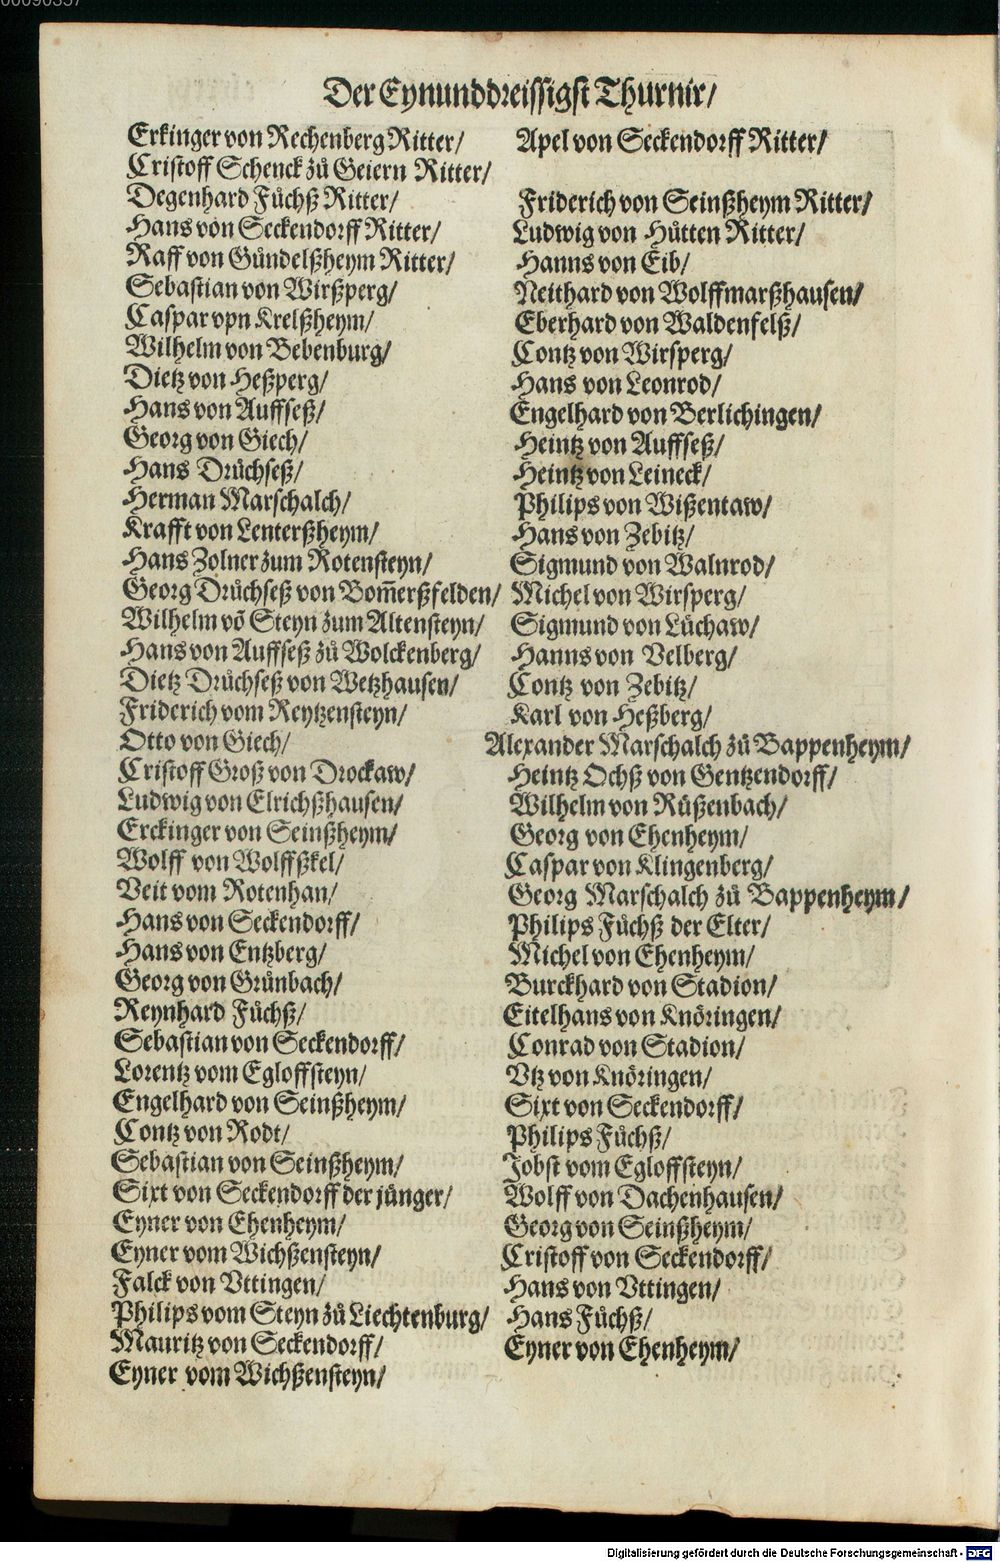 Der Eynunddreissigst Thurnir/
Erkinger von Rechenberg Ritter/
Cristoff Schenck zů Geiern Ritter/
Degenhard Füchß Ritter/
Hans von Seckendorff Ritter/
Raff von Gündelßheym Ritter/
Sebastian von Wirßperg/
Caspar vpn Krelßheym/
Wilhelm von Bebenburg/
Dietz von Heßperg/
Hans von Auffseß/
Georg von Giech/
Hans Drůchseß/
Herman Marschalch/
Krafft von Lenterßheym/
Hans Zolner zum Rotensteyn/
Georg Drůchseß von Bom̃erßfelden/
Wilhelm võ Steyn zum Altensteyn/
Hans von Auffseß zů Wolckenberg/
Dietz Drůchseß von Wetzhausen/
Friderich vom Reytzensteyn/
Otto von Giech/
Cristoff Groß von Drockaw/
Ludwig von Elrichßhausen/
Erckinger von Seinßheym/
Wolff von Wolffßkel/
Veit vom Rotenhan/
Hans von Seckendorff/
Hans von Entzberg/
Georg von Grůnbach/
Reynhard Füchß/
Sebastian von Seckendorff/
Lorentz vom Egloffsteyn/
Engelhard von Seinßheym/
Contz von Rodt/
Sebastian von Seinßheym/
Sixt von Seckendorff der jünger/
Eyner von Ehenheym/
Eyner vom Wichßensteyn/
Falck von Vttingen/
Philips vom Steyn zů Liechtenburg/
Mauritz von Seckendorff/
Eyner vom Wichßensteyn/
Apel von Seckendorff Ritter/
Friderich von Seinßheym Ritter/
Ludwig von Hütten Ritter/
Hanns von Eib/
Neithard von Wolffmarßhausen/
Eberhard von Waldenfelß/
Contz von Wirsperg/
Hans von Leonrod/
Engelhard von Berlichingen/
Heintz von Auffseß/
Heintz von Leineck/
Philips von Wißentaw/
Hans von Zebitz/
Sigmund von Walnrod/
Michel von Wirsperg/
Sigmund von Lůchaw/
Hanns von Velberg/
Contz von Zebitz/
Karl von Heßberg/
Alexander Marschalch zů Bappenheym/
Heintz Ochß von Gentzendorff/
Wilhelm von Rüßenbach/
Georg von Ehenheym/
Caspar von Klingenberg/
Georg Marschalch zů Bappenheym/
Philips Füchß der Elter/
Michel von Ehenheym/
Burckhard von Stadion/
Eitelhans von Knöringen/
Conrad von Stadion/
Vtz von Knöringen/
Sixt von Seckendorff/
Philips Füchß/
Jobst vom Egloffsteyn/
Wolff von Dachenhausen/
Georg von Seinßheym/
Cristoff von Seckendorff/
Hans von Vttingen/
Hans Füchß/
Eyner von Ehenheym/
Digitalisierung gefördert durch die Deutsche Forschungsgemeinschaft - DFG